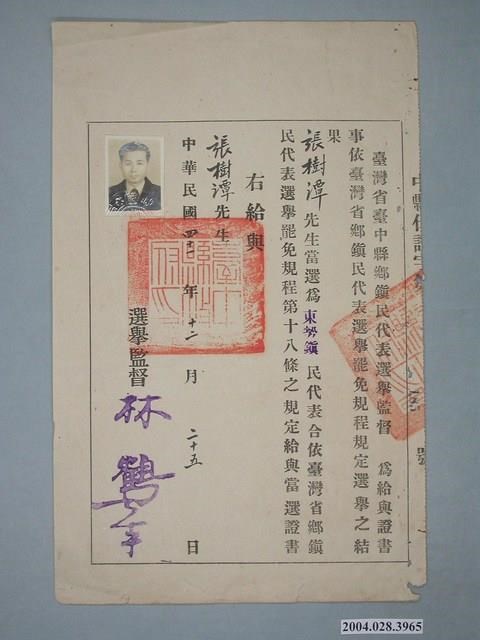 臺灣省臺中縣鄉鎮民代表選舉監督　為給與證書
事依臺灣省鄉鎮民代表選舉罷免規程規定選舉之結
果
張樹潭先生當選為東勢鎮民代表合依臺灣省鄉鎮
民代表選舉罷免規程第十八條之規定給與當選證書
右給與
張樹潭先生
選舉監督 林鶴年
中華民國四十年十二月二十五日
2004.028.3965